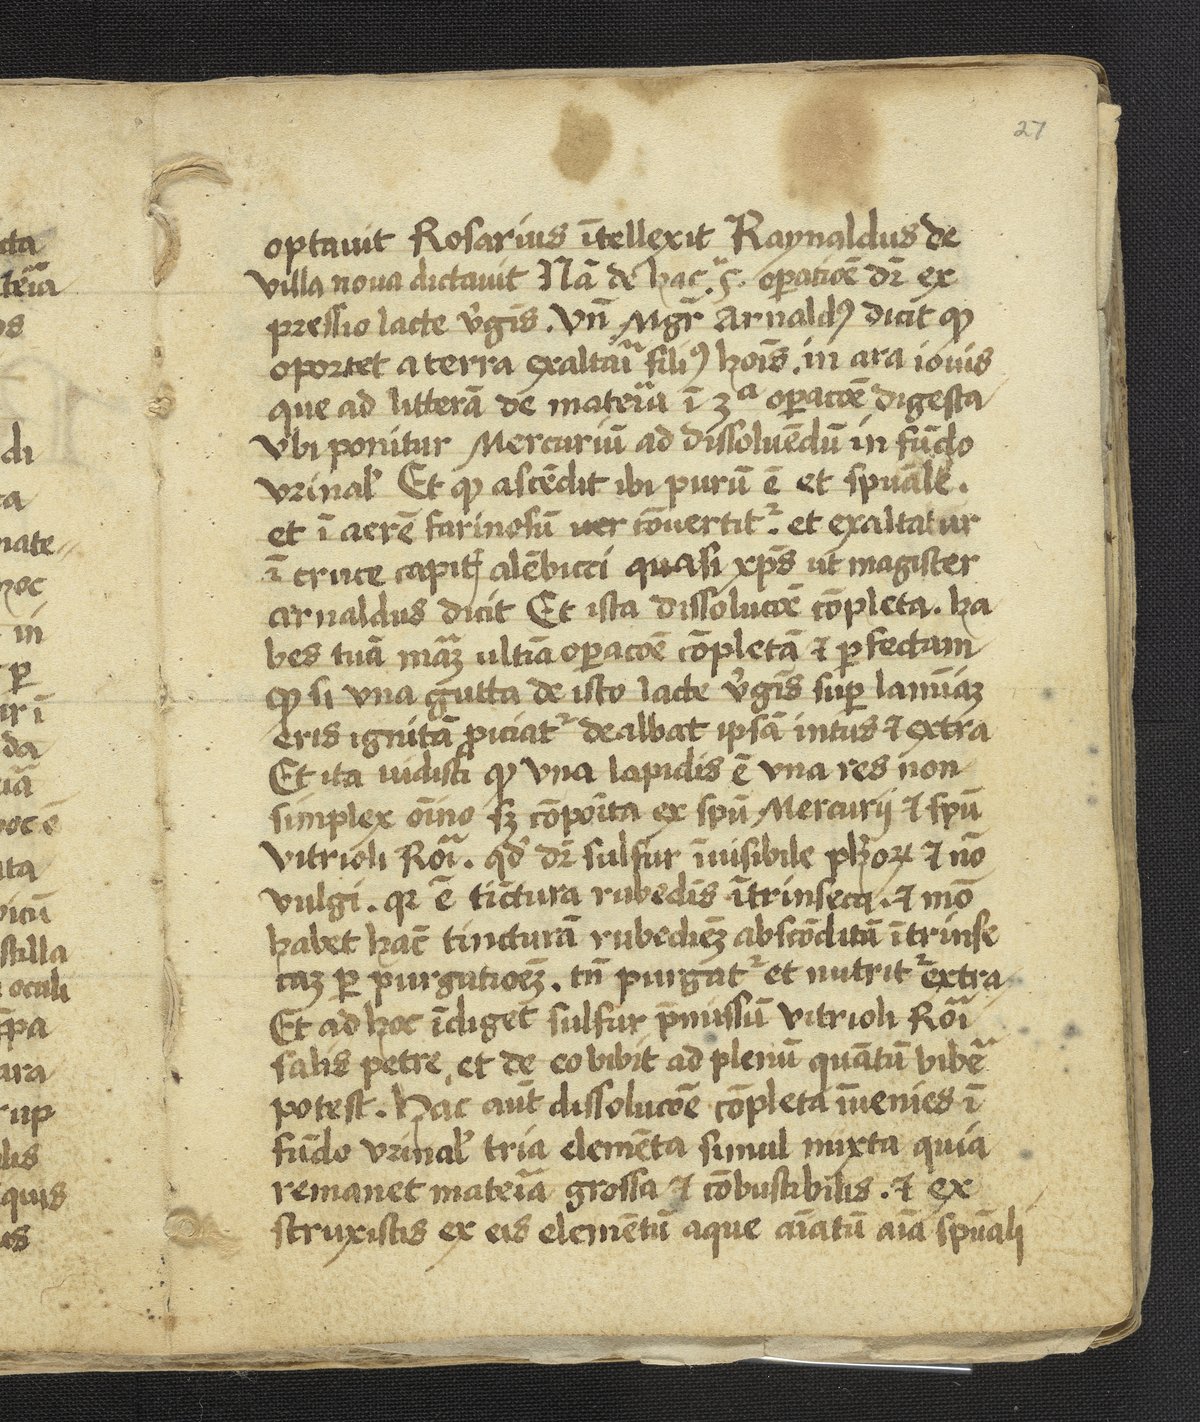 27
optauit Rosarius ītellexit Raynaldus de
villa noua dictauit Nā de hac .s. operatiōe dr̄ ex
pressio lacte v̓gīs. Vn̄ Mgr̄ Arnaldꝰ dicit ꝙ
oportet a terra exaltaī filiꝰ hoīs. in ara iouis
que ad litterā de materia ī 3ᵃ operacōē digesta
vbi ponitur Mercuriū ad dissoluēdū in fūdo
vrinal̓ Et ꝙ ascēdit ibi purū ē et spūale.
et ī aerē farinosū uer cōuertitᷣ. et exaltatur
ī cruce capitꝭ alēbicci quasi xp̄s ut magister
arnaldus dicit Et ista dissolucōē cōpleta. ha
bes tuā māꝫ ultīā operacōē cōpletā ⁊ ꝑfectam
ꝙ si vna gutta de isto lacte v̓gīs suꝑ lamīaꝫ
eris ignitā ꝓiciatᷣ dealbat ipsā intus ⁊ extra
Et ita uidisti ꝙ vna lapidis ē vna res non
simplex oīno sꝫ cōpoīta ex spū Mercurij ⁊ spū
vitrioli Roī. qd̓ dr̄ sulfur īuisibile ph̄oꝝ ⁊ nō
vulgi. qr ē tīctura rubedīs ītrinseca. ⁊ mō
habet hāc tincturā rubedieꝫ abscōditā ītrinse
caꝫ ꝑ purgatiōeꝫ. tn̄ purgatᷣ et nutritᷣ extra
Et ad hoc īdiget sulfur p̄missū vitrioli Roī
salis petre, et de eo bibit ad plenū quātū bibē
potest. Hac aūt dissolucōē cōpleta īuenies ī
fūdo vrinal̓ tria elemēta simul mixta quia
remanet materīa grossa ⁊ cōbustibilis. ⁊ ex
struxistis ex eis elemētū aque aīatū aīa spūali